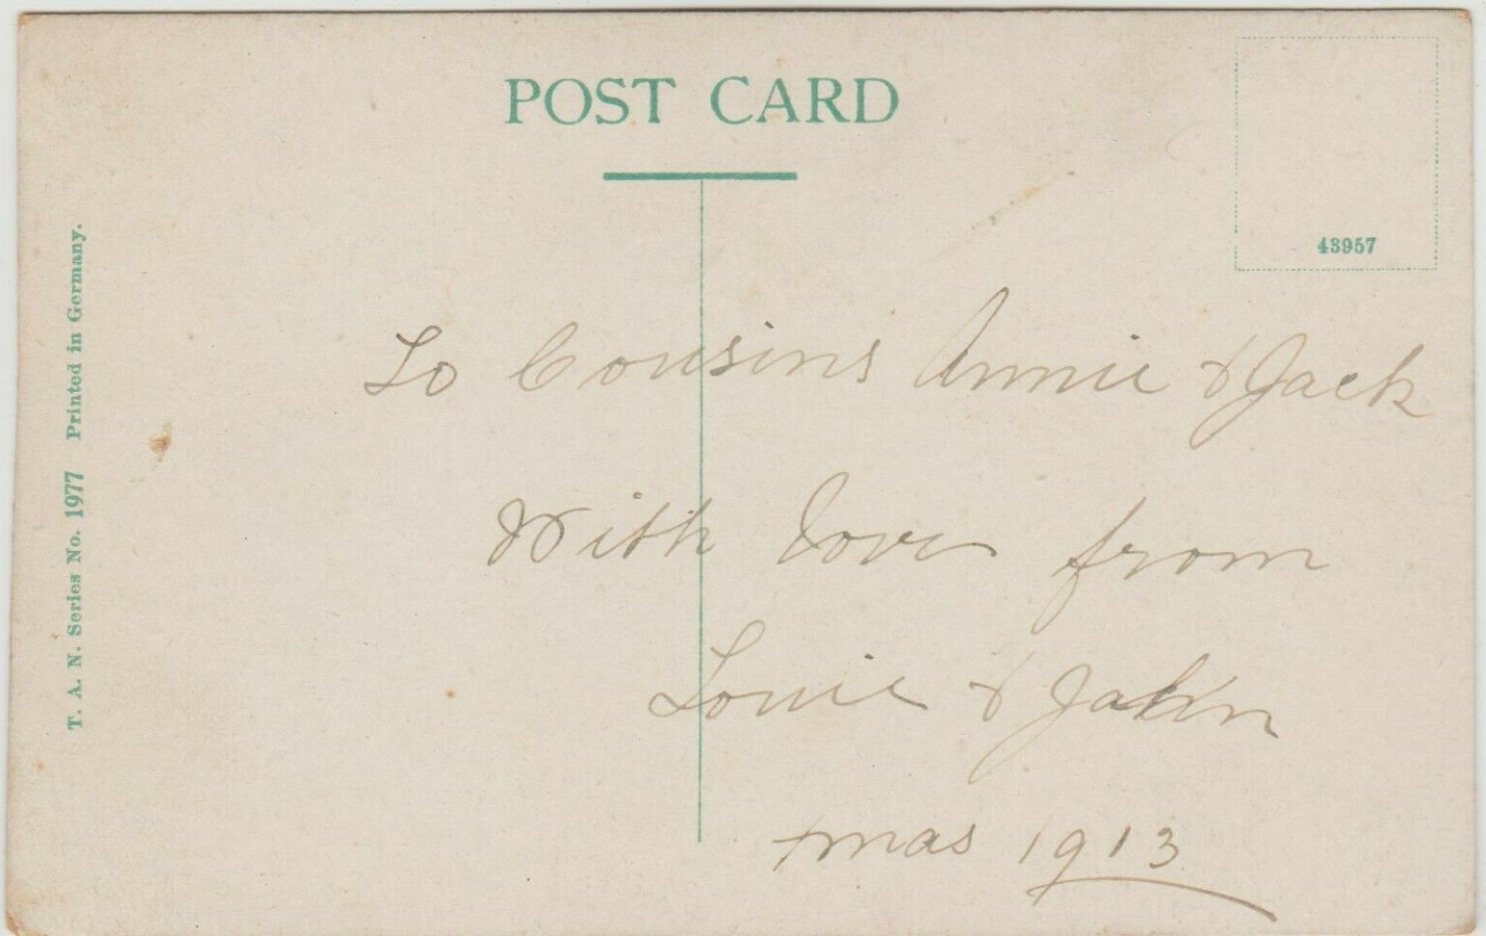 POST CARD
43957
T. A. N. Series No. 1977 Printed in Germany.
To Cousins Annie & Jack
With love from
Louie & John
Xmas 1913